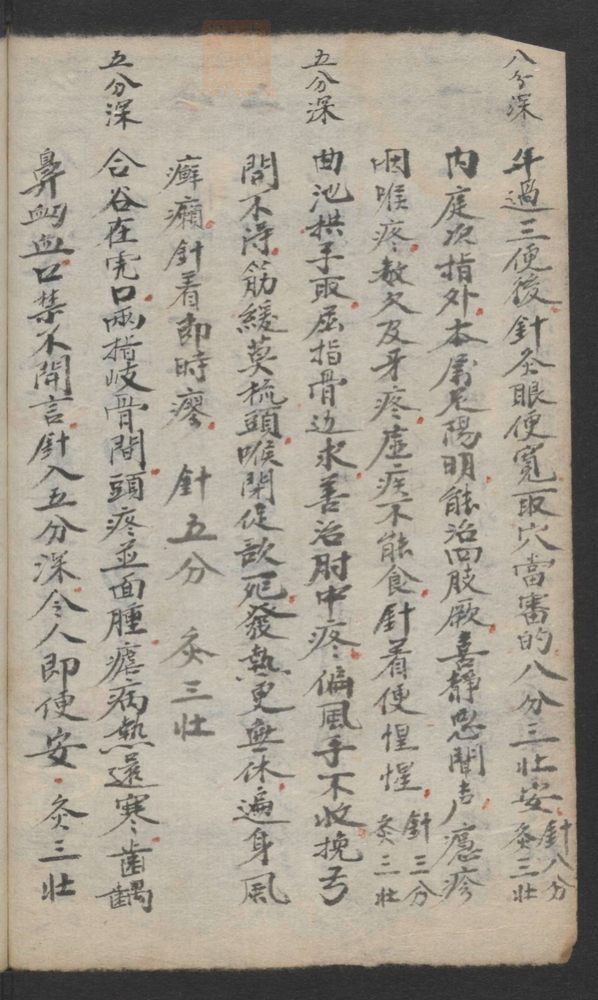 八分深
年過三便後針灸眼便寬取穴當審的八分三壯安 針八分 灸三壯
内庭次指外本屬足陽明能治四肢厥喜静惡聞声癮疹
咽喉疼数欠及牙疼虐疾不能食針着便惺惺 針三分 灸三壯
五分深
曲池拱手取屈指骨边求善治肘中疼偏風手不收挽弓
開不得筋緩莫梳頭喉閉促欲死發熱更無休遍身風
癬癩針着即時瘳 針五分 灸三壯
五分深
合谷在虎口兩指岐骨間頭疼並面腫瘧病熱還寒齒齲
鼻衂血口禁不開言針入五分深令人即便安 灸三壯